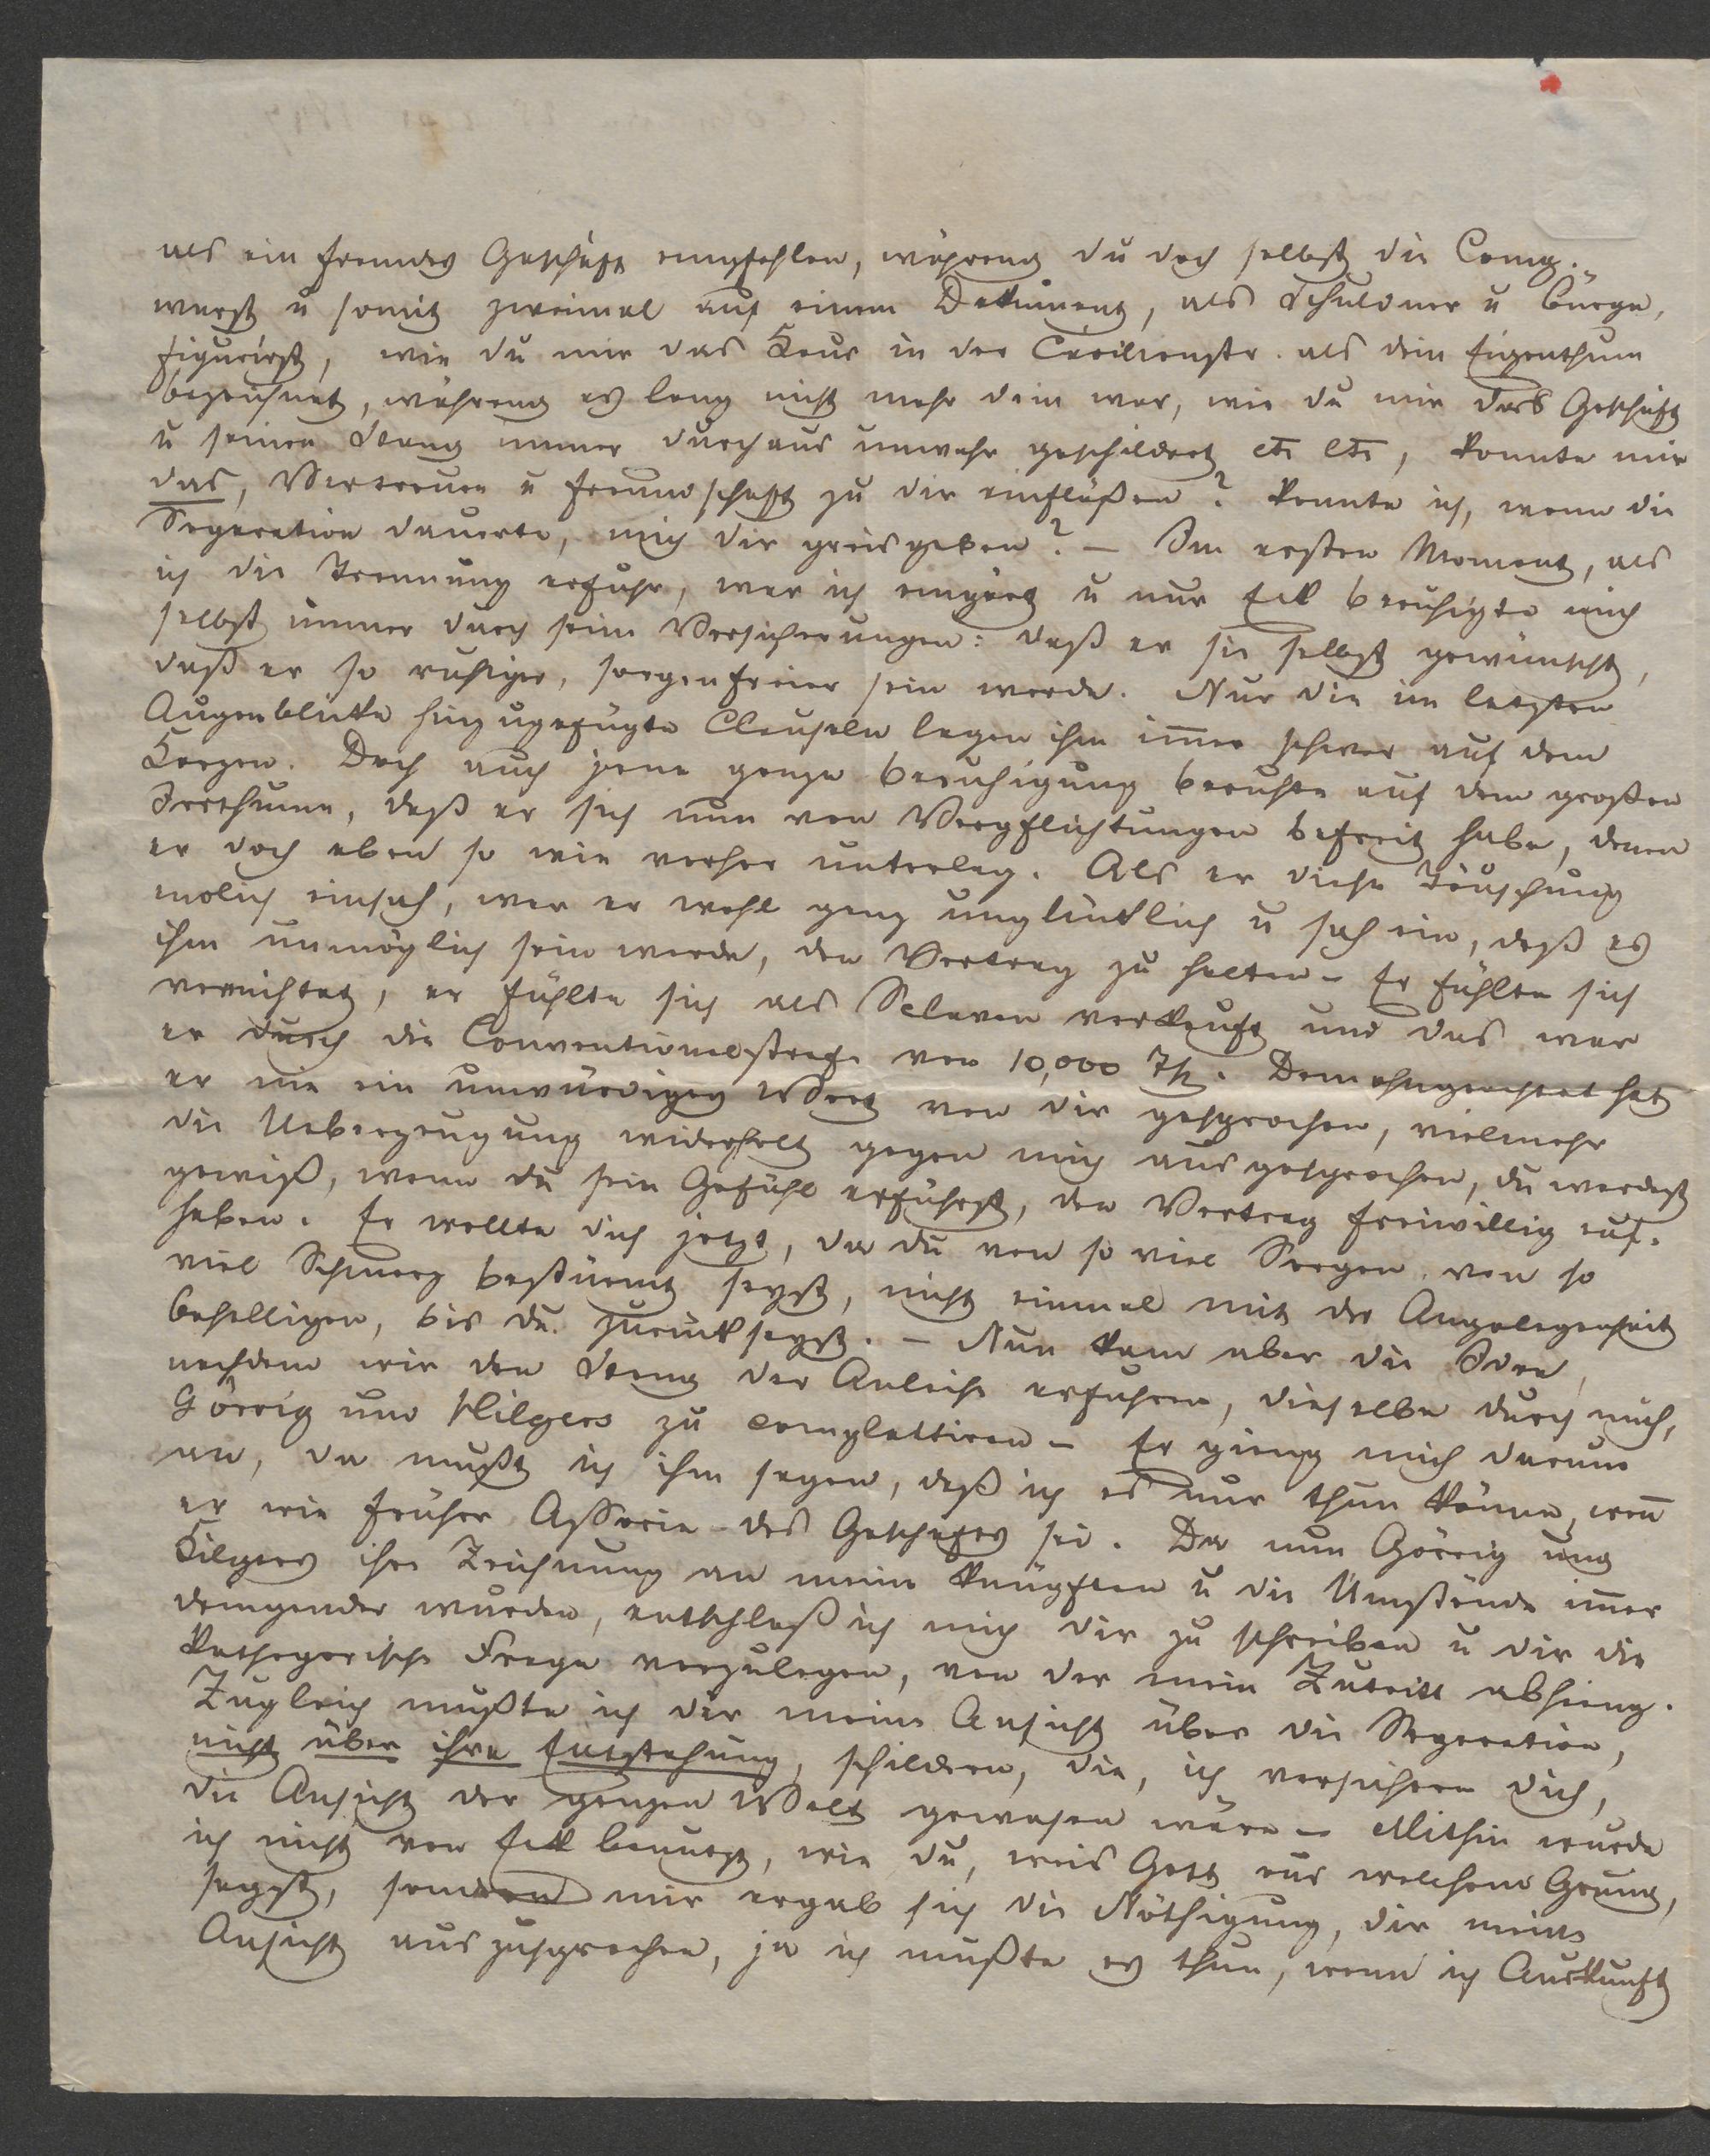 als ein fremdes Geschäft empfohlen, während du doch selbst die Comp.
warst u somit zweimal auf einem Dokument, als Schuldner u Bürge,
figurirst, wie du mir das Haus in der Caecilienstr. als dein Eigenthum
bezeichnet, während es lang nicht mehr dein war, wie du mir das Geschäft
u seinen Stang immer durchaus unwahr geschildert etc etc, konnte mir
das, Vertrauen u Freundschaft zu dir einflößen? Konnte ich, wenn die
Separation dauerte, mich dir preisgeben? – Im ersten Moment, als
ich die Trennung erfuhr, war ich empört u nur Eck beruhigte mich
selbst immer durch seine Versicherungen: daß er sie selbst gewünscht,
daß er so ruhiger, sorgenfreier sein werde. Nur die im letzten
Augenblicke hinzugefügte Clauseln lagen ihm imer schwer auf dem
Herzen. Doch auch jene ganze Beruhigung beruhte auf dem großen
Irrthume, daß er sich nun von Verpflichtungen befreit habe, denen
er doch eben so wie vorher unterlag. Als er diese Täuschung
endlich einsah, war er wohl ganz unglücklich u sah ein, daß es
ihm unmöglich sein werde, den Vertrag zu halten – Er fühlte sich
vernichtet, er fühlte sich als Sclaven verkauft und das war
er durch die Conventionalstrafe von 10,000 Th. Demohngeachtet hat
er nie ein unwürdiges Wort von dir gesprochen, vielmehr
die Ueberzeugung widerholt gegen mich ausgesprochen, du werdest
gewiß, wenn du sein Gefühl erführst, den Vertrag freiwillig auf-
heben. Er wollte dich jetzt, da du von so viel Sorgen, von so
viel Schmerz bestürmt seyst, nicht einmal mit der Angelegenheit
behelligen, bis du zurück seyst. – Nun kam aber die Idee,
nachdem wir den Stang der Anleihe erfuhren, dieselbe durch mich,
Görrig und Hilgers zu complettiren – Er gieng mich darum
an, da mußt ich ihm sagen, daß ich es nur thun könne, wen
er wie früher Associe des Geschäftes sei. Da nun Görrig und
Hilgers ihre Zeichnung an meine knüpften u die Umstände imer
dringender wurden, entschloß ich mich dir zu schreiben u dir die
kathegorische Frage vorzulegen, von der mein Zutritt abhieng.
Zugleich mußte ich dir meine Ansicht über die Separation,
nicht über ihre Entstehung, schildern, die, ich versichere dich,
die Ansicht der ganzen Welt gewesen wäre – Mithin wurde
ich nicht von Eck benutzt, wie du, weis Gott aus welchem Grund,
sagst, sondern mir ergab sich die Nöthigung, dir meine
Ansicht auszusprechen, ja ich mußte es thun, wenn ich Auskunft